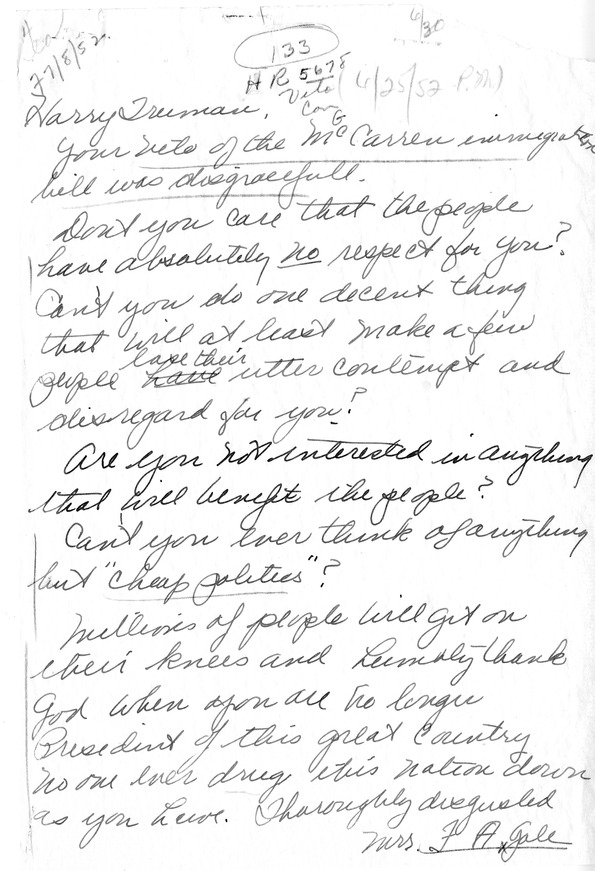 6/30
F7/8/52
133
HR 5678
Veto
Con
(6/25/52 P.M.)
Harry Truman,
Your veto of the McCarren immigration
bill was disgracefull.
Don't you care that the people
have absolutely no respect for you?
Can't you do one decent thing
that will at least make a few
lose their
people have utter contempt and
disregard for you?
Are you not interested in anything
that will benefit the people?
Can't you ever think of anything
but "cheap politics"?
Millions of people will get on
their knees and humbly thank
God when you are no longer
President of this great Country
no one ever drug this nation down
as you have. Thoroughly disgusted
Mrs. F A Gale